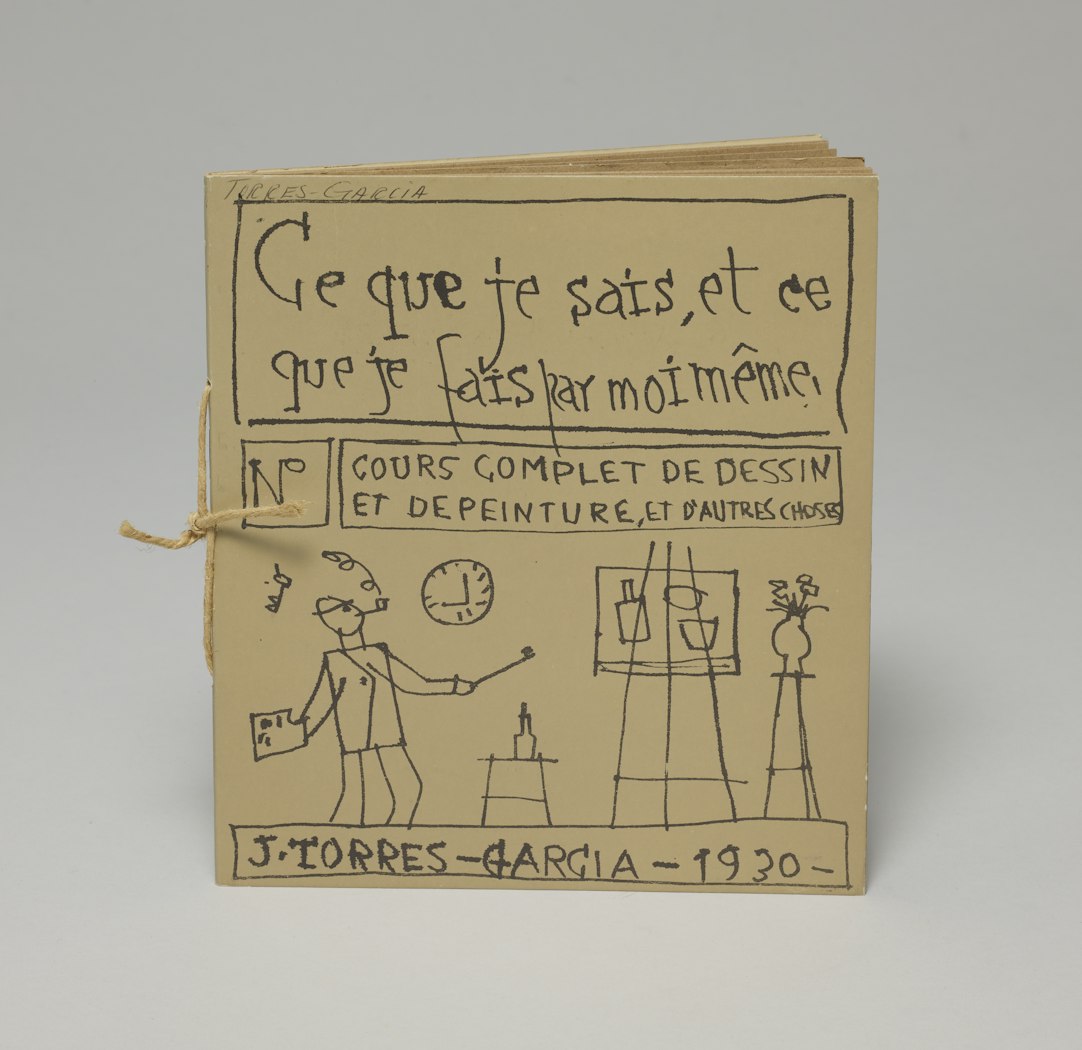 TORRES-GARCIA
Ce que je sais, et ce
que je fais par moi même.
Nº
COURS COMPLET DE DESSIN
ET DE PEINTURE, ET D'AUTRES CHOSES
J. TORRES-GARCIA - 1930 -